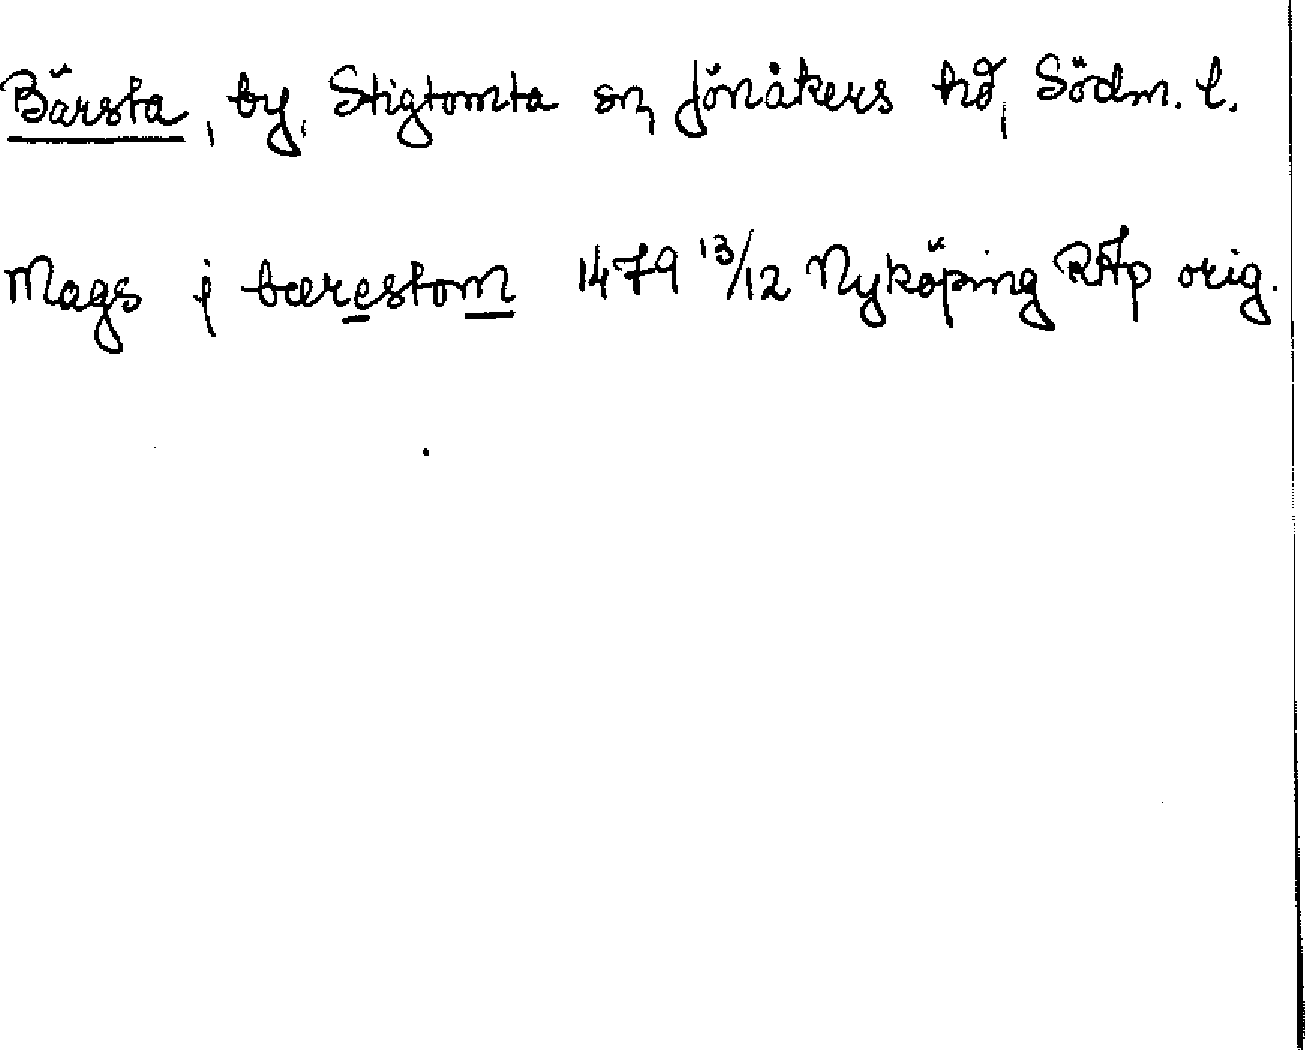 Bärsta, by, Stigtomta sn, Jönåkers hd, Södm. l.
Mags j bærestom 1479 13/12 Nyköping RAp orig.